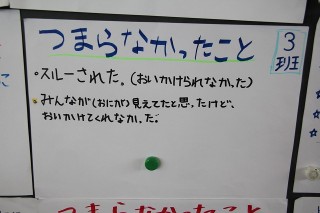 つまらなかったこと
3班
・スルーされた。(おいかけられなかった)
・みんなが(おにが)見えてたと思ったけど、
おいかけてくれなかった。
つまらなかったこと